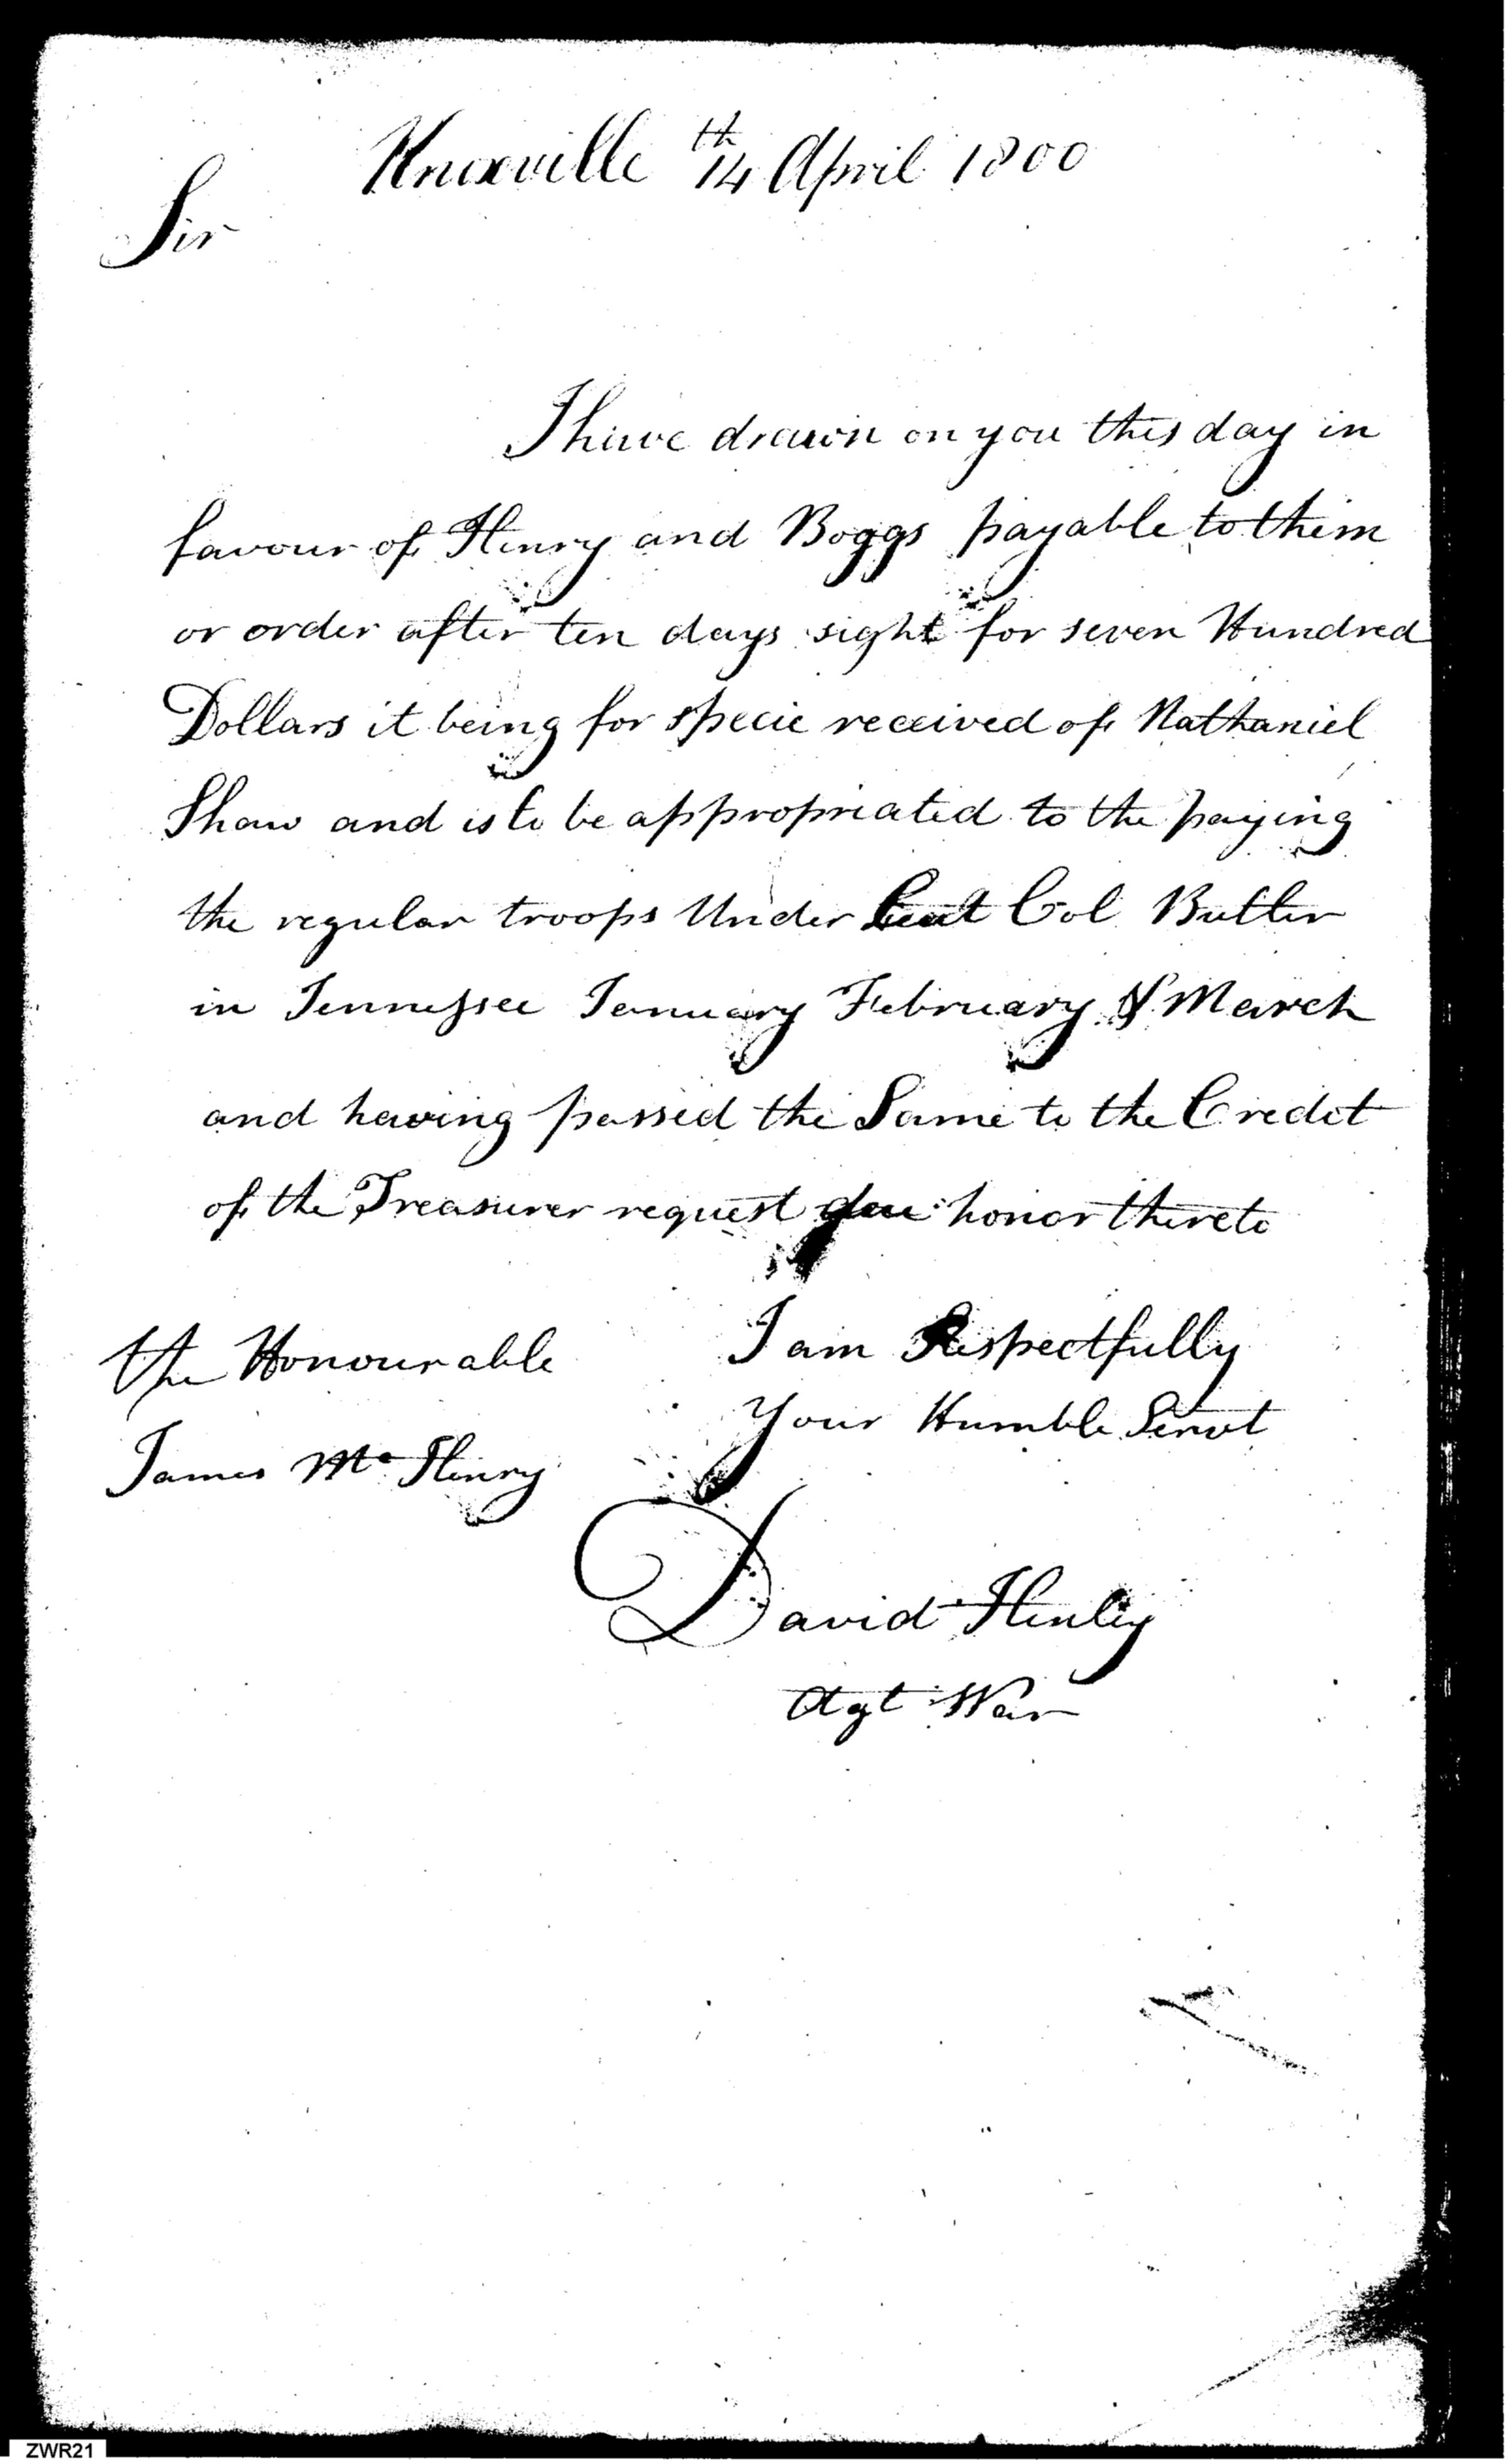 Knoxville 14th April 1800
Sir
I have drawn on you this day in
favour of Henry and Boggs payable to them
or order after ten days sight for seven Hundred
Dollars it being for specie received of Nathaniel
Shaw and is to be appropriated to the paying
the regular troops Under Lieut Col Butler
in Tennessee January February & March
and having passed the Same to the Credit
of the Treasurer request due honor thereto
I am Respectfully
Your Humble Servt
David Henley
Agt War
the Honourable
James McHenry
ZWR21